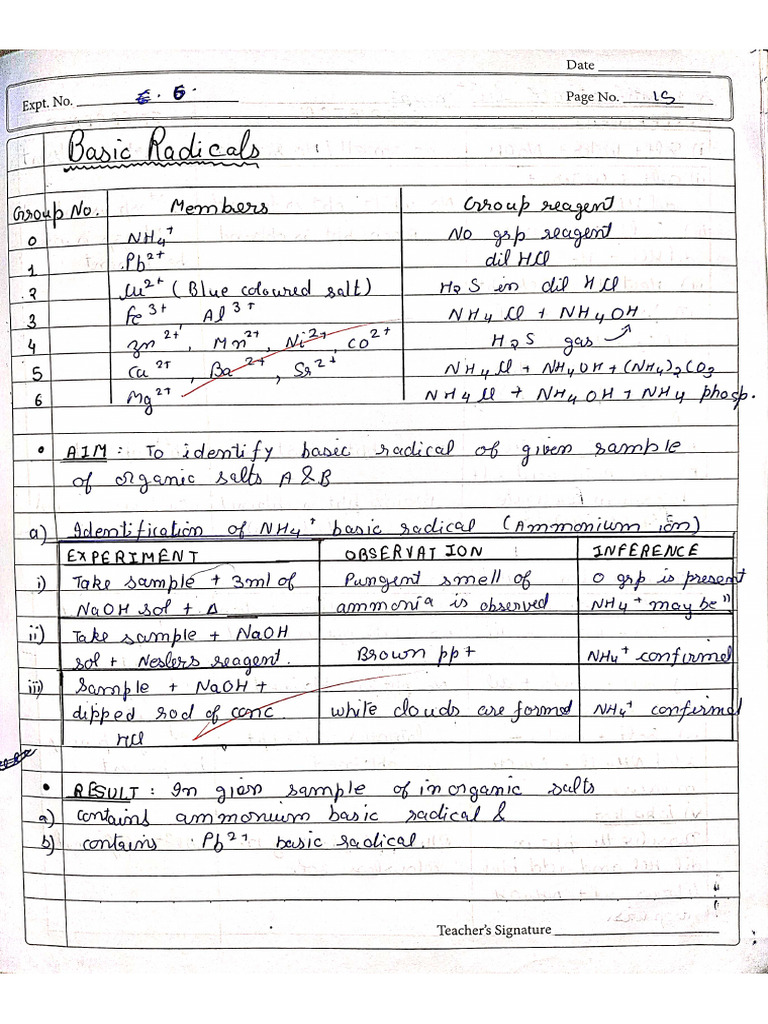 Date
Expt. No. 6.
Page No. 15
Basic Radicals
Group No. Members Group reagent
0 NH4+ No grp reagent
1 Pb2+ dil HCl
2 Cu2+ (Blue coloured salt) H2S in dil HCl
3 Fe3+, Al3+ NH4Cl + NH4OH
4 Zn2+, Mn2+, Ni2+, CO2+ H2S gas
5 Ca2+, Ba2+, Sr2+ NH4Cl + NH4OH + (NH4)2CO3
6 Mg2+ NH4Cl + NH4OH + NH4 phosp.
• AIM : To identify basic radical of given sample
of organic salts A & B
a) Identification of NH4+ basic radical (Ammonium ion)
EXPERIMENT OBSERVATION INFERENCE
i) Take sample + 3ml of Pungent smell of 0 grp is present
NaOH sol + Δ ammonia is observed NH4+ may be "
ii) Take sample + NaOH
sol + Neslers reagent. Brown ppt NH4+ confirmed
iii) Sample + NaOH +
dipped rod of conc white clouds are formed NH4+ confirmed
HCl
• RESULT : In gien sample of inorganic salts
a) contains ammonium basic radical &
b) contains Pb2+ basic radical.
Teacher's Signature